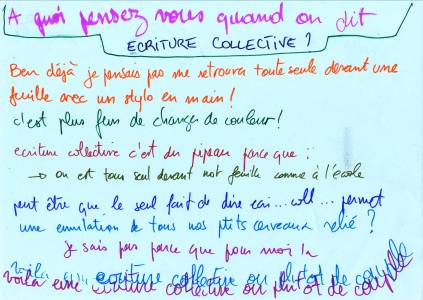 A quoi pensez vous quand on dit
ECRITURE COLLECTIVE ?
Ben déjà je pensais pas me retrouver toute seule devant une
feuille avec un stylo en main !
c'est plus fun de changer de couleur !
ecriture collective c'est du pipeau parce que :
→ on est tous seul devant not' feuille comme à l'école
peut être que le seul fait de dire ecri... coll... permet
une emulation de tous nos ptits cerveaux relié ?
je sais pas parce que pour moi la
voila une ecriture collective ou plutot de couple
voila une ecriture collective ou plutot de couple